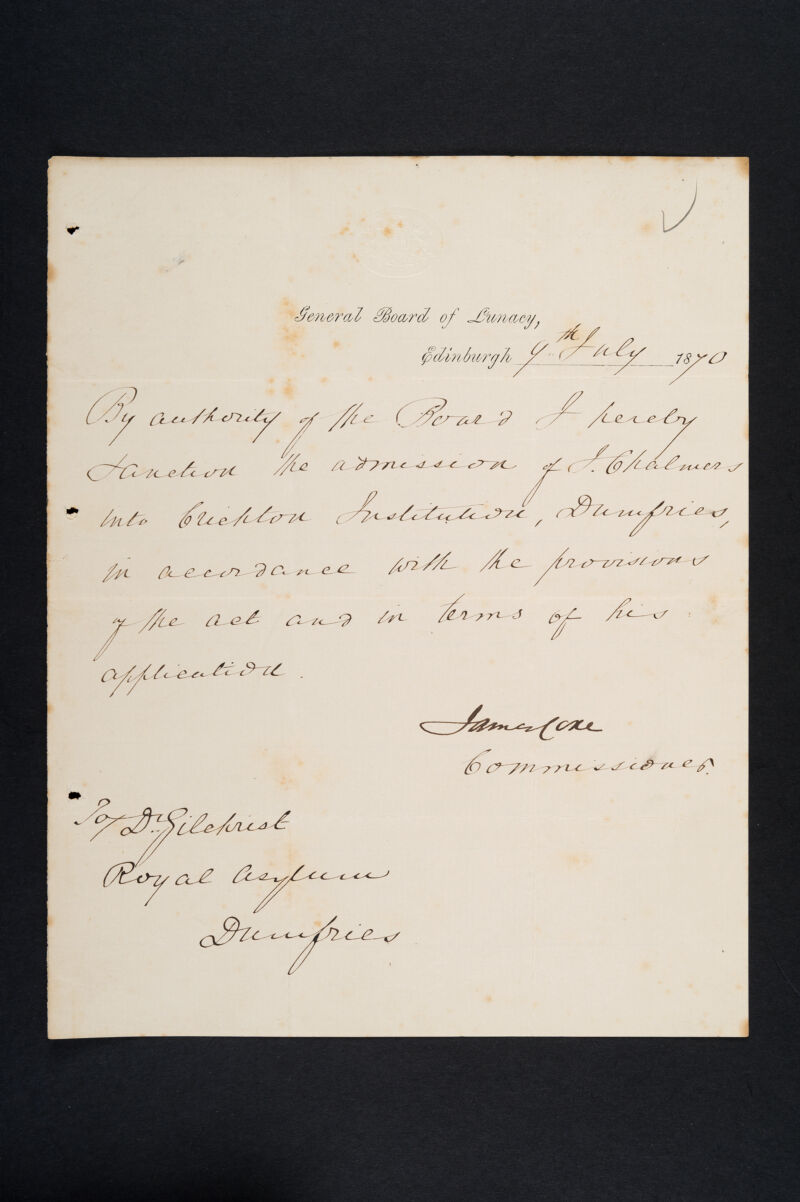 General Board of Lunacy,
Edinburgh 9th July 1870
By authority of the Board I hereby
sanction the admission of J. Chalmers
into Crichton Institution, Dumfries,
in accordance with the provisions
of the act and in terms of his
application.
James Coxe
Commissioner.
To/ Dr. Gilchrist
Royal Asylum
Dumfries